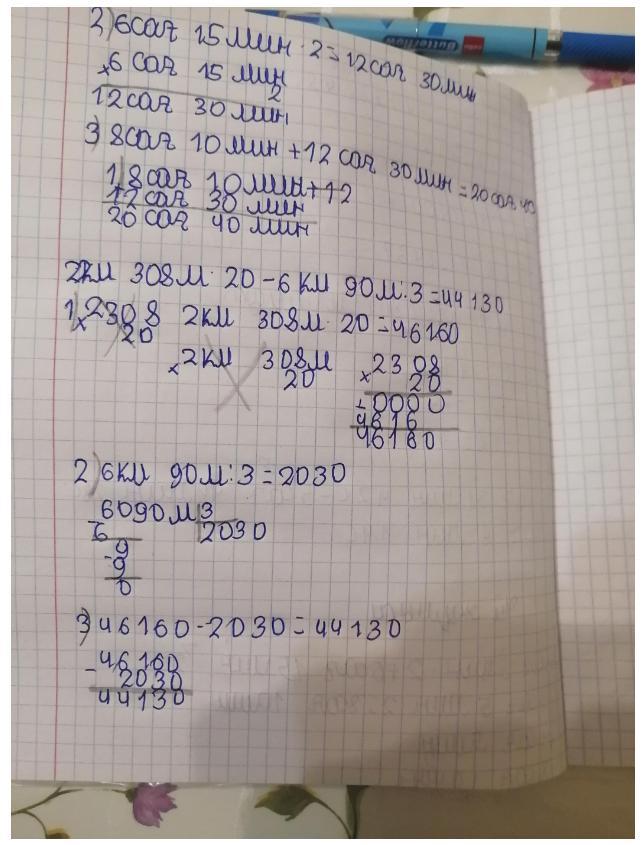 2) 6 сағ 15 мин · 2 = 12 сағ 30 мин
× 6 сағ 15 мин
2
12 сағ 30 мин
3) 8 сағ 10 мин + 12 сағ 30 мин = 20 сағ 40
18 сағ 10 мин + 12
12 сағ 30 мин
20 сағ 40 мин
2км 308м · 20 - 6 км 90м : 3 = 44130
1) × 2308 2км 308м · 20 = 46160
20
× 2км 308м × 2308
20 20
+ 0000
4616
46160
2) 6км 90м : 3 = 2030
- 6090м 3
6 2030
9
- 9
0
3) 46160 - 2030 = 44130
- 46160
2030
44130